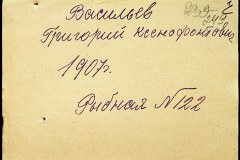 Васильев
Григорий Ксенофонтович
1907г.
Рыбная №122